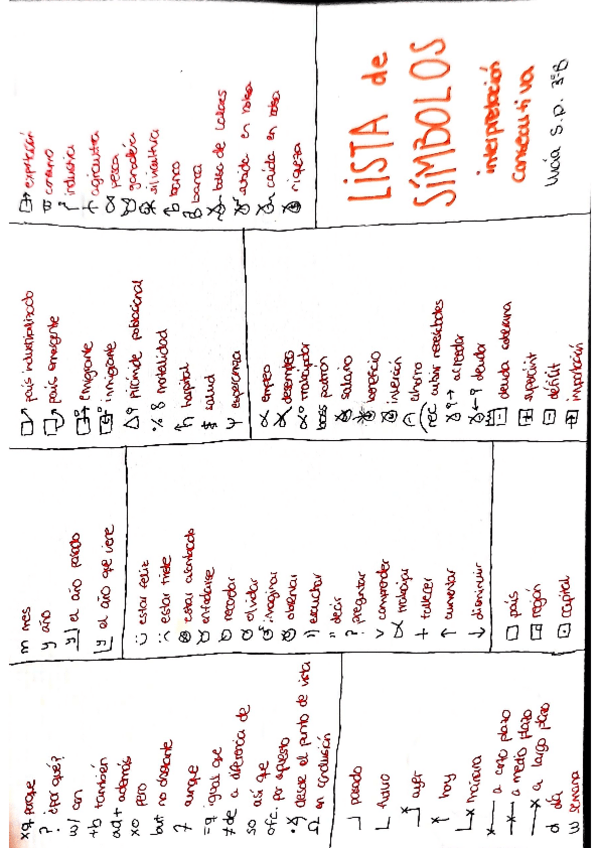 LISTA de
SÍMBOLOS
interpretación
consecutiva
Lucía S.P. 3ºB
xq porque
? ¿por qué?
w/ con
+b también
ad+ además
xo pero
but no obstante
aunque
=q igual que
≠de a diferencia de
so así que
ofc. por supuesto
desde el punto de vista
Ω en conclusión
pasado
futuro
ayer
hoy
mañana
a corto plazo
a medio plazo
a largo plazo
d día
w semana
m mes
y año
y el año pasado
y el año que viene
:) estar feliz
:( estar triste
estar
enfadarse
recordar
olvidar
imaginar
observar
escuchar
" decir
? preguntar
v comprender
trabajar
+ fallecer
↑ aumentar
↓ disminuir
□ país
región
⊡ capital
país industrializado
país emergente
emigrante
inmigrante
pirámide poblacional
mortalidad
hospital
salud
esperanza
α empleo
desempleo
trabajador
boss patrón
salario
beneficio
inversión
ahorro
nec cubrir necesidades
acreedor
deudor
deuda
superávit
déficit
importación
exportación
consumo
industria
agricultura
pesca
ganadería
silvicultura
b banco
B banca
bolsa de valores
subida en bolsa
caída en bolsa
riqueza